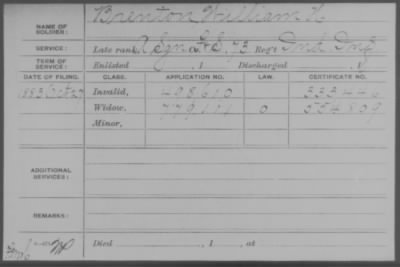 NAME OF SOLDIER: Brenton William H
SERVICE: Late rank, Sgn F&S, 73 Reg't Ind. Inf
TERM OF SERVICE: Enlisted , 1 Discharged , 1
DATE OF FILING. CLASS. APPLICATION NO. LAW. CERTIFICATE NO.
1883 Oct 27 Invalid, 498,610 333 446
Widow, 779,111 0 554,809
Minor,
ADDITIONAL SERVICES:
REMARKS:
Died , 1 , at